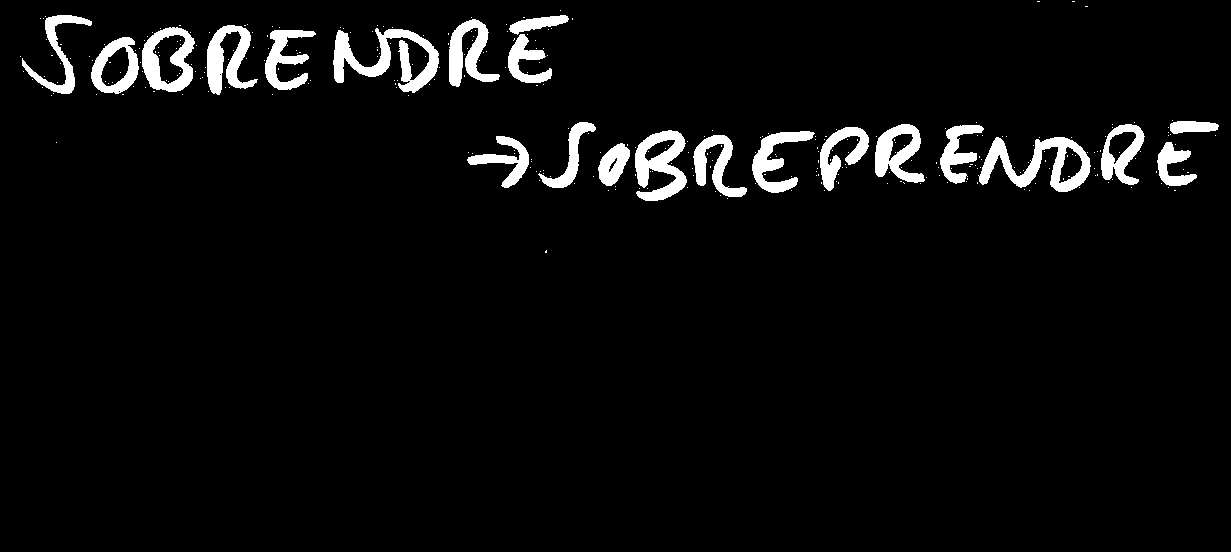 SOBRENDRE
→SOBREPRENDRE